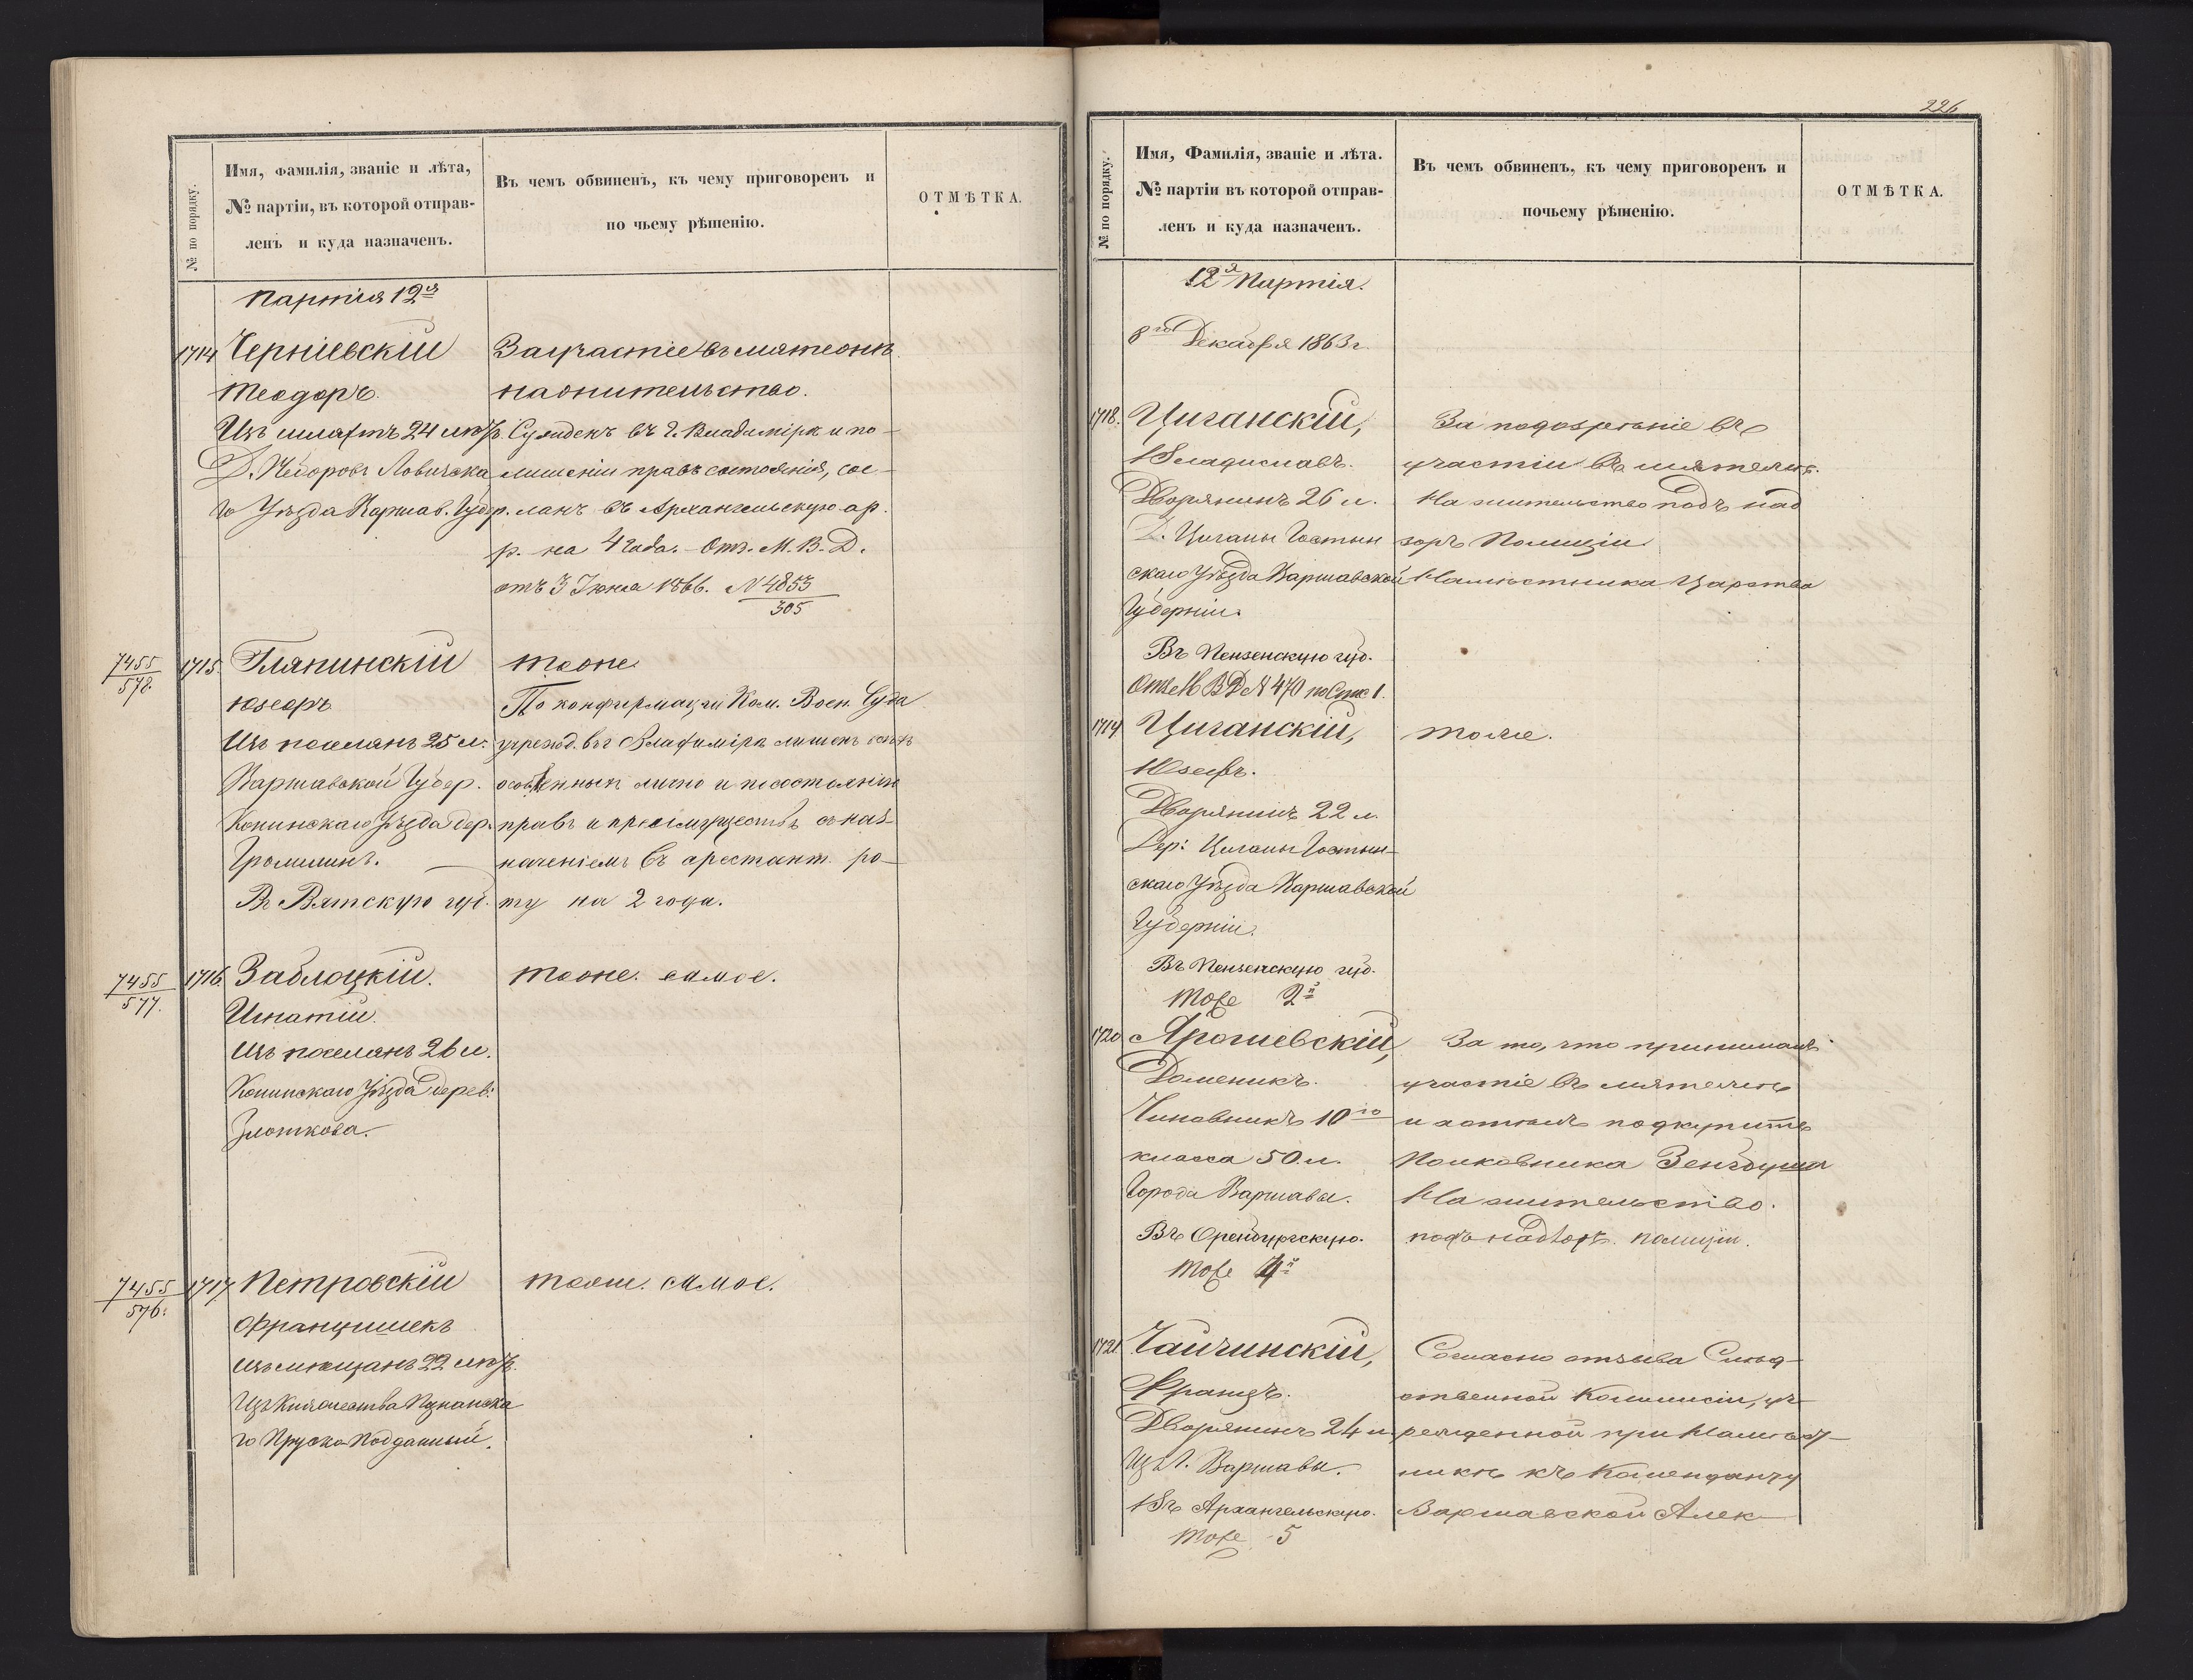 № по порядку.
Имя, фамилія, званіе и лѣта,
№ партіи, въ которой отправ-
ленъ и куда назначенъ.
Въ чемъ обвиненъ, къ чему приговоренъ и
по чьему рѣшенію.
ОТМѢТКА.
Партія 12я
1714 Черніевскій
Теодоръ.
Изъ шляхтъ 24 лѣтъ.
Д. Ловичска
го Уѣзда Варшав. Губер.
За участіе въ мятежѣ
на жительство.
Сужденъ въ г. Владимірѣ и по
лишеніи правъ состоянія, сос-
ланъ въ Архангельскую ар.
р. на 4 года. - Отз. М. В. Д.
отъ 3 Іюня 1866. N 4853
305
7455
578.
1715. Гляпинскій
Юзефъ
Изъ поселянъ 25 л.
Варшавской Губер.
Конинскаго Уѣзда дер.
Громилинъ. —
Въ Вятскую губ.
тоже
По конфирмаціи Ком. Воен. Суда
учрежд. въ г. Владимірѣ лишенъ всѣхъ
особенныхъ лично и по состоянію
правъ и преимуществъ съ наз-
наченіемъ въ арестант. ро-
ту на 2 года.
7455
577.
1716. Заблоцкій.
Игнатій.
Изъ поселянъ 26 л.
Конинскаго Уѣзда дерев:
Злоткова.
тоже. самое.
7455
576.
1717 Петровскій
Францишекъ
изъ мѣщанъ 22 лѣтъ.
Изъ Княжества Познанска
го Пруско-Подданный.
тоже. самое.
226
№ по порядку.
Имя, Фамилія, званіе и лѣта.
№ партіи въ которой отправ-
ленъ и куда назначенъ.
Въ чемъ обвиненъ, къ чему приговоренъ и
почьему рѣшенію.
ОТМѢТКА.
12я Партія.
8го Декабря 1863 г.
1718. Циганскій,
Владиславъ.
Дворянинъ 26 л.
Д. Циганы Гостын
скаго Уѣзда Варшавской
Губерніи.
Въ Пензенскую губ.
Отз. М В Д N 470 по Спис 1.
За подозрѣніе въ
участіи въ мятежѣ.
На жительство подъ над
зоръ Полиціи
Намѣстника Царства
1719 Циганскій,
Юзефъ.
Дворянинъ 22 л.
Дер: Циганы Гостын-
скаго Уѣзда Варшавской
Губерніи.
Въ Пензенскую губ.
Тоже 2й
тоже.
1720 Ярошевскій,
Доменикъ.
Чиновникъ 10го
класса 50 л.
Города Варшавы.
Въ Оренбургскую.
Тоже 4й
За то, что принималъ
участіе въ мятежѣ
и хотѣлъ подкупить
Полковника Зенгбуша
На жительство.
подъ надзоръ полиціи.
1721 Чайчинскій,
Францъ.
Дворянинъ 24 л.
Изъ г. Варшавы.
Въ Архангельскую.
Тоже 5
Согласно отзыва Слѣд-
ственной Коммисіи, уч-
режденной при Намѣст-
никѣ къ Коменданту
Варшавской Алек-